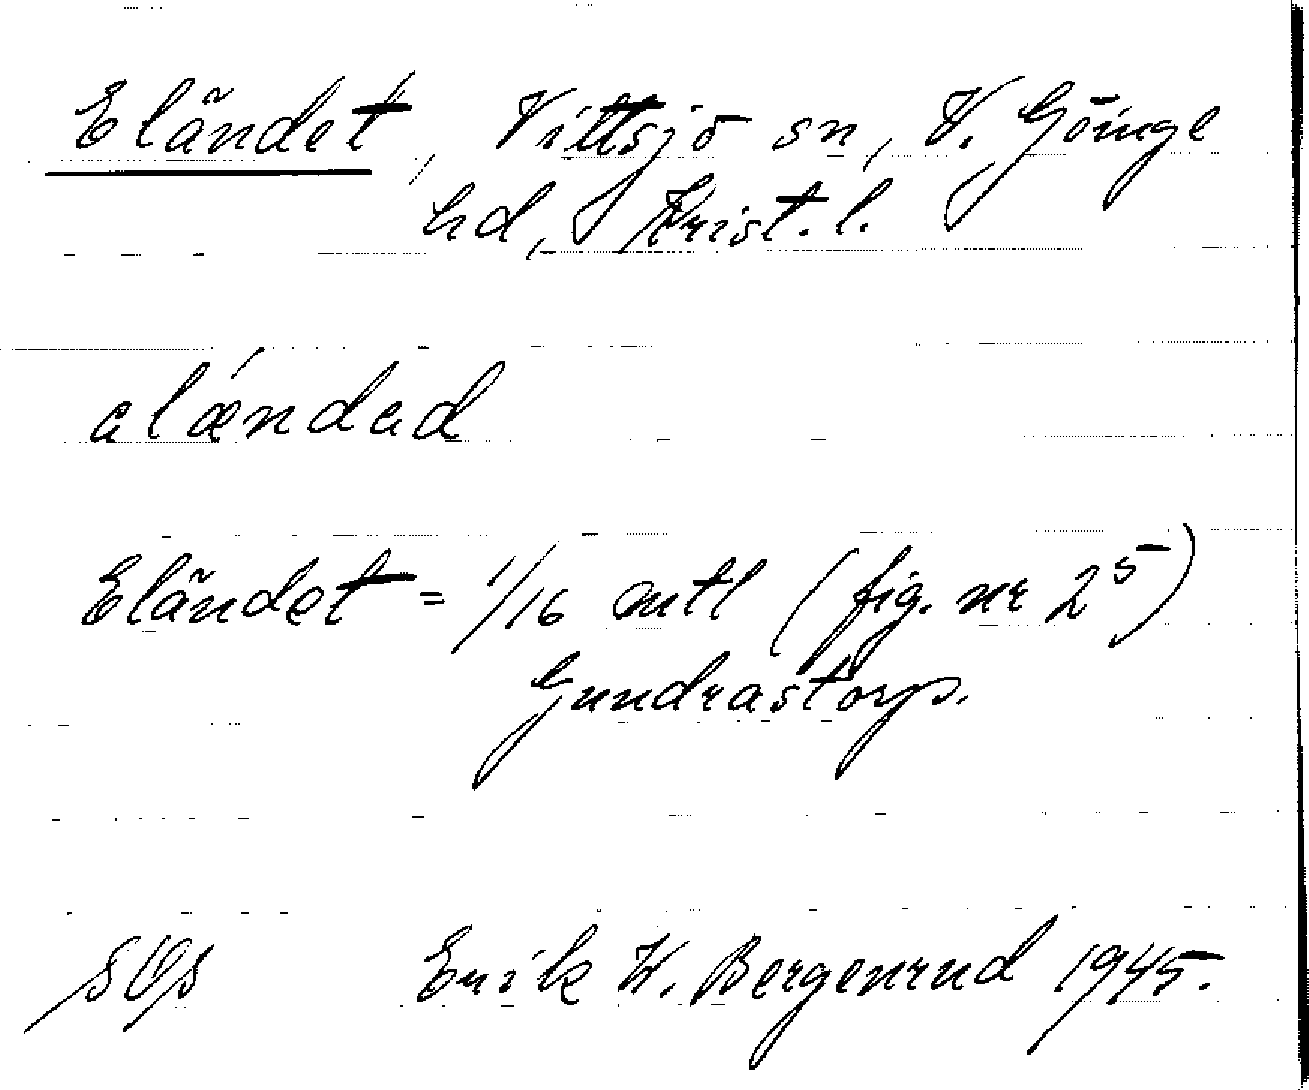 Eländet, Vittsjö sn, V. Göinge
hd, Krist. l.
alǽndad
Eländet = 1/16 mtl (fig. nr 2⁵)
Gundrastorp.
Erik W. Bergenrud 1945.